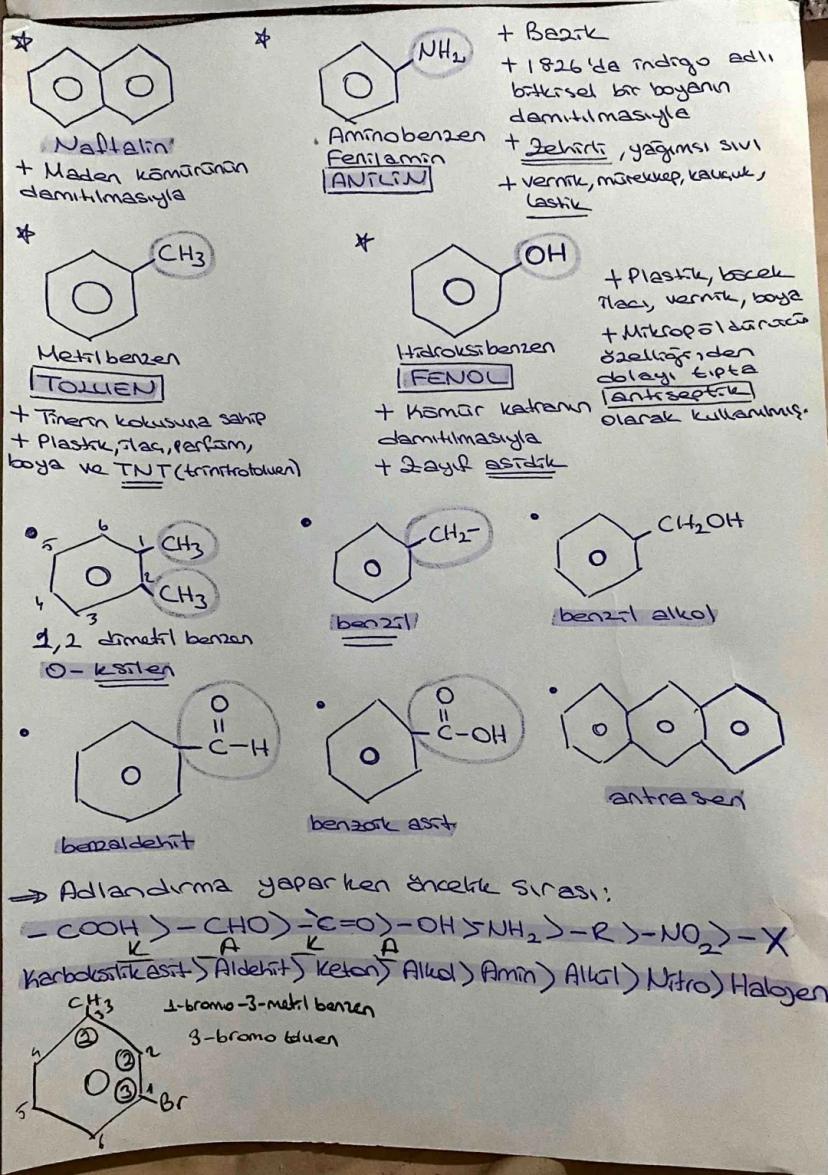 NH₂
Naftalin
+ Maden kömürünün
damıtılmasıyla
Aminobenzen
Fenilamin
ANİLİN
+ Bazik
+ 1826'da indigo adlı
bitkisel bir boyanın
damıtılmasıyla
+ Zehirli, yağımsı sıvı
+ vernik, mürekkep, kauçuk,
Lastik
CH3
Metilbenzen
TOLUEN
+ Tinerin kokusuna sahip
+ Plastik, ilaç, parfüm,
boya ve TNT (trinitrotoluen)
OH
Hidroksibenzen
FENOL
+ Kömür katranın
damıtılmasıyla
+ Zayıf asidik
+ Plastik, böcek
ilacı, vernik, boya
+ Mikrop öldürücü
özelliğinden
dolayı tıpta
antiseptik
olarak kullanılmış.
6
5 1 CH3
2 CH3
4 3
1,2 dimetil benzen
O- ksilen
CH2-
benzil
CH2OH
benzil alkol
O
C-H
benzaldehit
O
C-OH
benzoik asit
antrasen
⇒ Adlandırma yaparken öncelik sırası:
- COOH > - CHO > -C=O > - OH > -NH2 > -R > -NO2 > - X
K A K A
Karboksilik asit > Aldehit > Keton > Alkol > Amin > Alkil > Nitro > Halojen
CH3
3
1
4 2 2
3 1 Br
5
6
1-bromo-3-metil benzen
3-bromo toluen